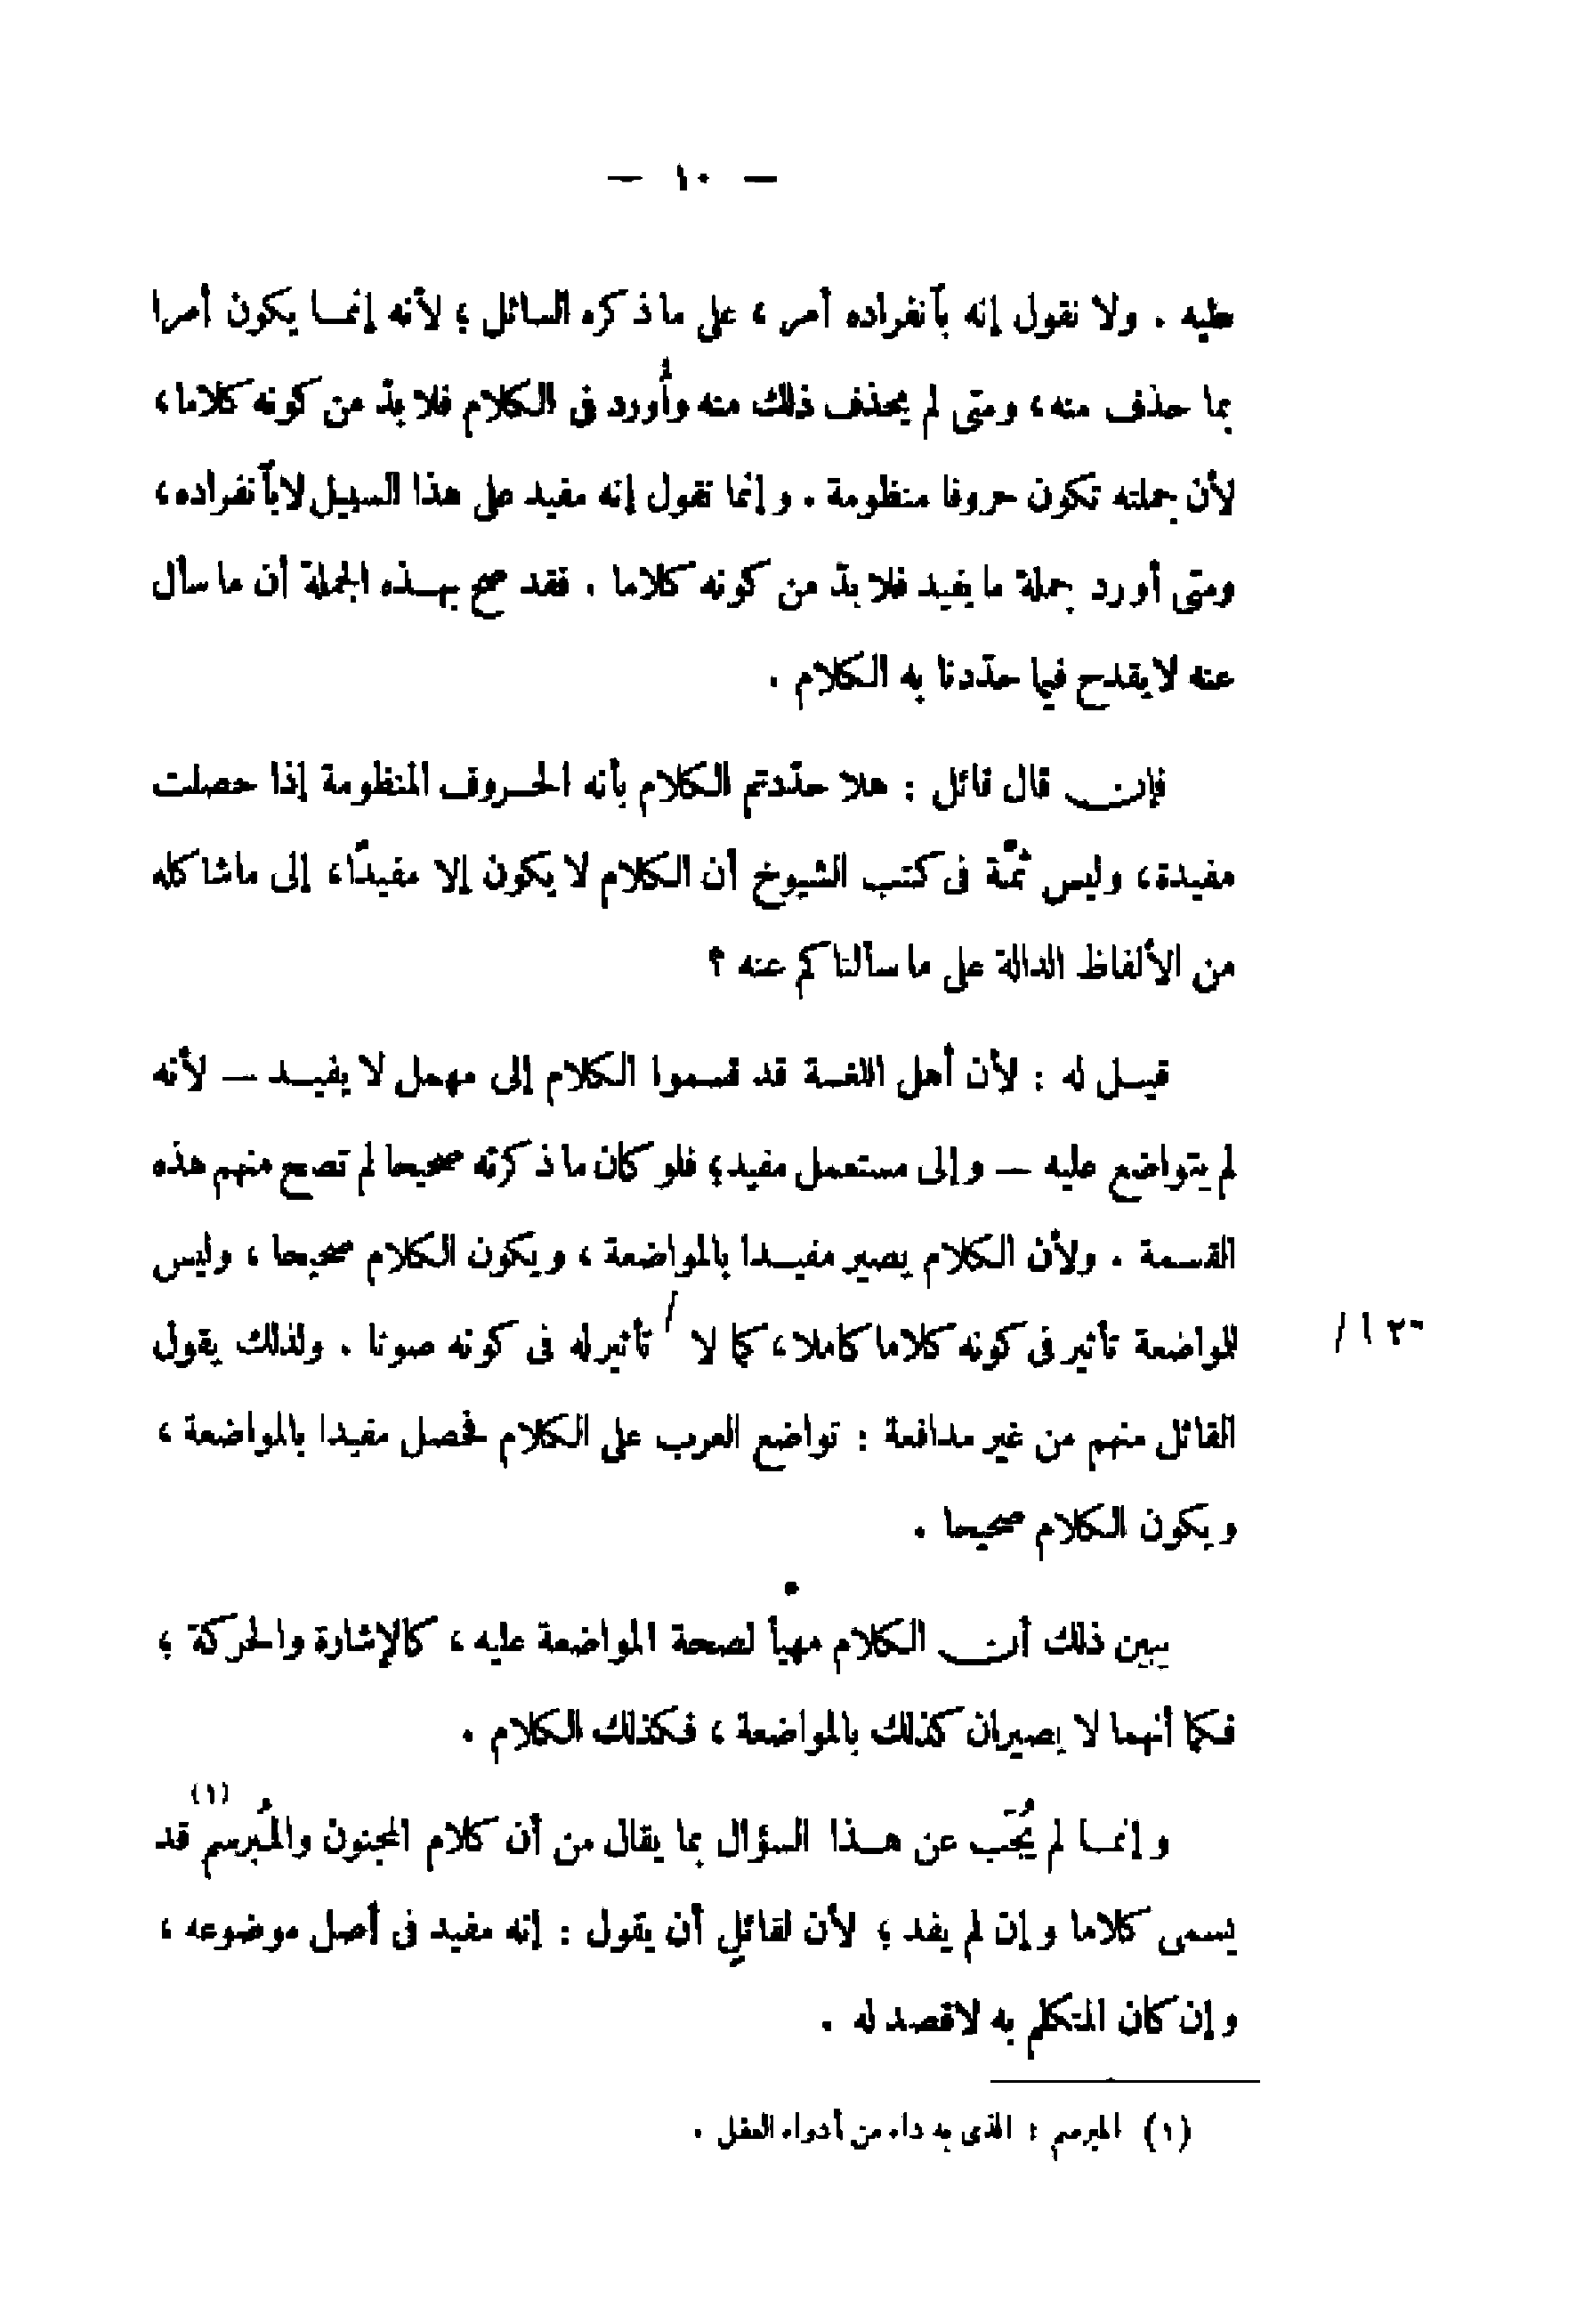 — ١٠ —
عليه . ولا نقول إنه بآنفراده أمر ، على ما ذكره السائل ؛ لأنه إنمـا يكون أمرا
بما حذف منه ، ومتى لم يحذف ذلك منه وأُورد فى الكلام فلا بدّ من كونه كلاما ،
لأن جملته تكون حروفا منظومة . وإنما نقول إنه مفيد على هذا السبيل لا بآنفراده ،
ومتى أورد جملة ما يفيد فلا بدّ من كونه كلاما . فقد صح بهـذه الجملة أن ما سأل
عنه لا يقدح فيما حدّدنا به الكلام .
فإن قال قائل : هلا حدّدتم الكلام بأنه الحـروف المنظومة إذا حصلت
مفيدة ، وليس ثَمَّة فى كتب الشيوخ أن الكلام لا يكون إلا مفيدًا ، إلى ماشاكله
من الألفاظ الدالة على ما سألناكم عنه ؟
قيـل له : لأن أهل اللغـة قد قسـموا الكلام إلى مهمل لا يفيـد — لأنه
لم يتواضع عليه — وإلى مستعمل مفيد ؛ فلو كان ما ذكرته صحيحا لم تصح منهم هذه
القسـمة . ولأن الكلام يصير مفيـدا بالمواضعة ، ويكون الكلام صحيحا ، وليس
للمواضعة تأثير فى كونه كلاما كاملا ، كما لا / تأثير له فى كونه صوتا . ولذلك يقول
/ ٢ ا
القائل منهم من غير مدافعة : تواضع العرب على الكلام فحصل مفيدا بالمواضعة ،
ويكون الكلام صحيحا .
يبين ذلك أن الكلام مهيأ لصحة المواضعة عليه ، كالإشارة والحركة ؛
فكما أنهما لا يصيران كذلك بالمواضعة ، فكذلك الكلام .
وإنمـا لم يُجَب عن هـذا السؤال بما يقال من أن كلام المجنون والمُبرسم (١) قد
يسمى كلاما وإن لم يفد ؛ لأن لقائلٍ أن يقول : إنه مفيد فى أصل موضوعه ،
وإن كان المتكلم به لا قصد له .
(١) المبرسم : الذى به داء من أدواء العقل .